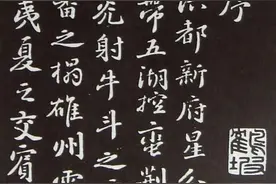 序
洪都新府星分
帶五湖控蠻荊
光射牛斗之
蕃之榻雄州霧
夷夏之交賓